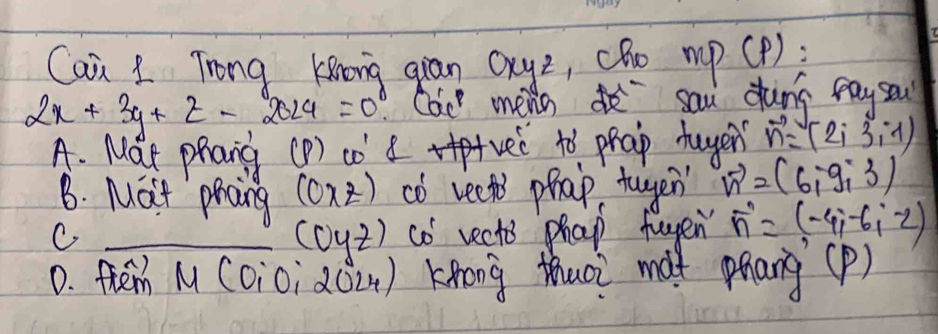 Câu 1 Trong không gian Oxyz, cho mp (P):
2x + 3y + z - 2024 = 0. Các mệnh đề sau đúng hay sai
A. Mặt phẳng (P) có 1 véc tơ pháp tuyến n⃗ = (2; 3; 1)
B. Mặt phẳng (Oxz) có vectơ pháp tuyến n⃗ = (6; 9; 3)
C. ________ (Oyz) có vectơ pháp tuyến n⃗ = (-4; -6; -2)
D. Điểm M (0; 0; 2024) không thuộc mặt phẳng (P)